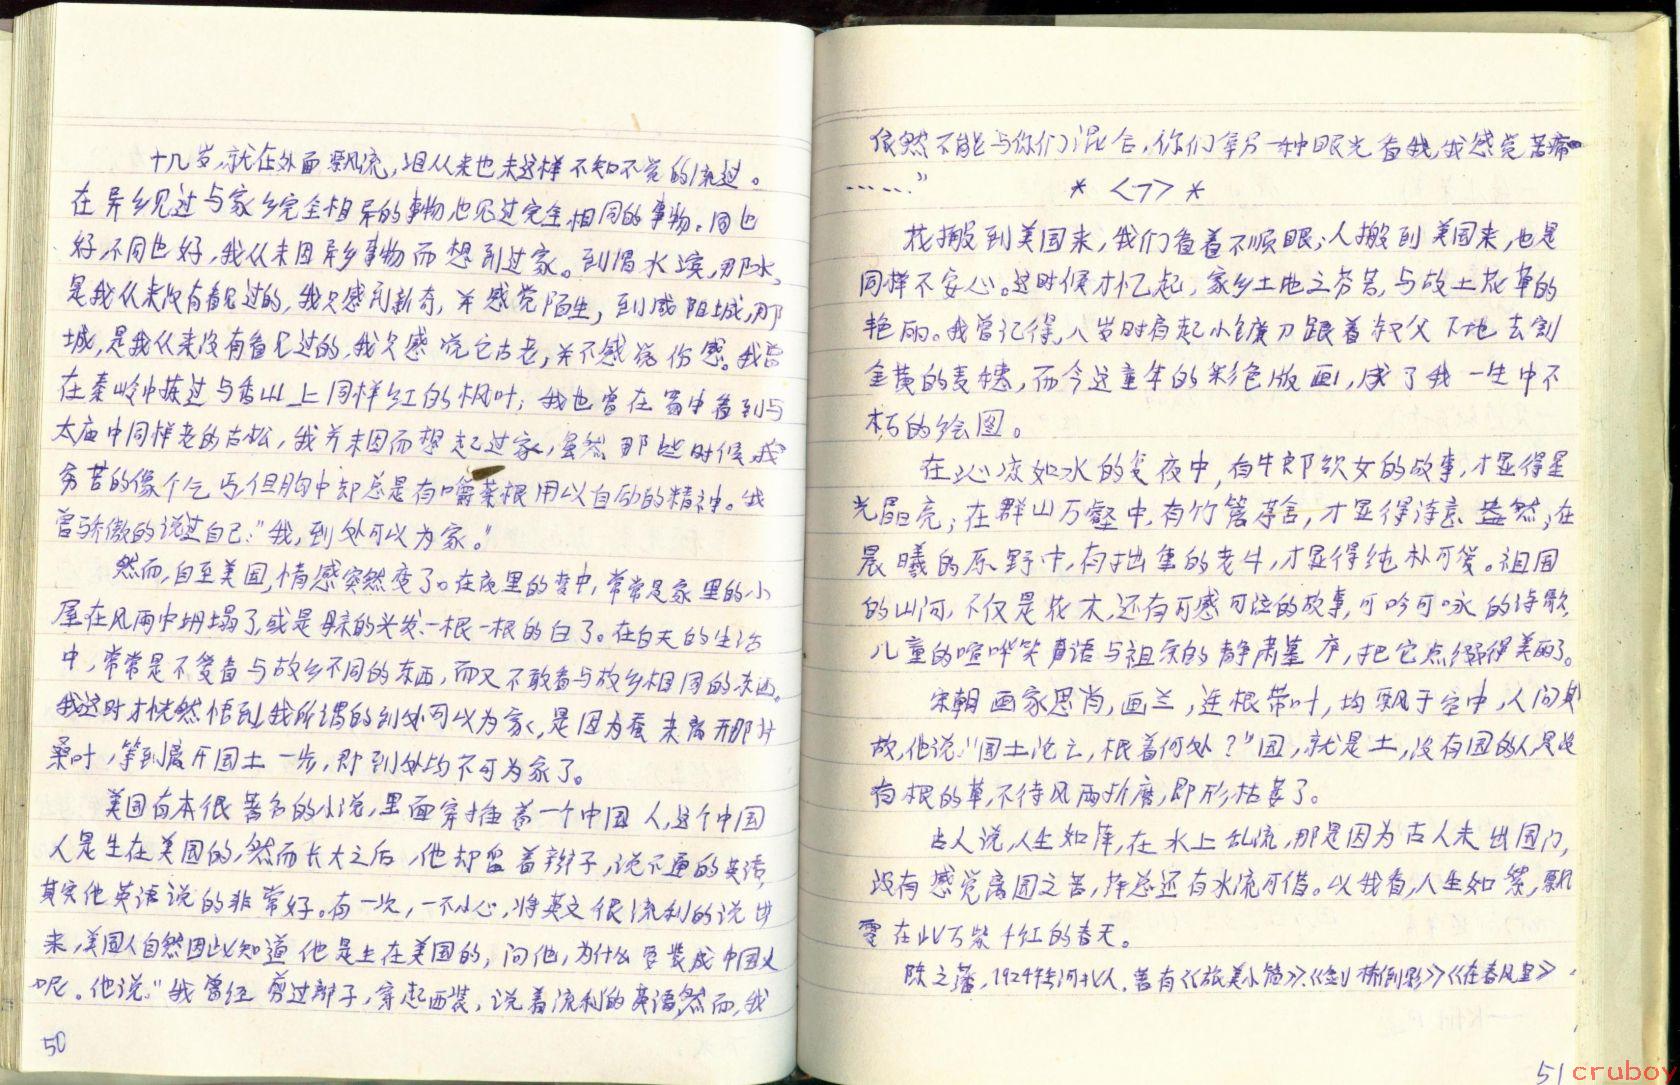 十几岁,就在外面飘流,但从来也未这样不知不觉的流过。
在异乡见过与家乡完全相异的事物也见过完全相同的事物。同也
好,不同也好,我从未因异乡事物而想到过家。到渭水滨,那水,
是我从来没有看见过的,我只感到新奇,并感觉陌生,到咸阳城,那
城,是我从来没有看见过的,我只感觉它古老,并不感觉伤感。我曾
在秦岭中拣过与香山上同样红的枫叶;我也曾在蜀中看到与
太庙中同样老的古松,我并未因而想起过家,虽然那些时候我
穷苦的像个乞丐,但胸中却总是有嚼菜根用以自励的精神。我
曾骄傲的说过自己:"我,到处可以为家。"
然而,自至美国,情感突然变了。在夜里的梦中,常常是家里的小
屋在风雨中坍塌了,或是母亲的头发一根一根的白了。在白天的生活
中,常常是不爱看与故乡不同的东西,而又不敢看与故乡相同的东西。
我这时才恍然悟到,我所谓的到处可以为家,是因为蚕未离开那片
桑叶,等到离开国土一步,即到处均不可为家了。
美国有本很著名的小说,里面穿插着一个中国人,这个中国
人是生在美国的,然而长大之后,他却留着辫子,说不通的英语,
其实他英语说的非常好。有一次,一不小心,将英文很流利的说出
来,美国人自然因此知道他是生在美国的,问他,为什么要装成中国人
呢。他说:"我曾经剪过辫子,穿起西装,说着流利的英语,然而,我
50
依然不能与你们混合,你们拿另一种眼光看我,我感觉苦痛
……"
* <7> *
花搬到美国来,我们看着不顺眼;人搬到美国来,也是
同样不安心。这时候才忆起,家乡土地之芬芳,与故土花草的
艳丽。我曾记得,八岁时肩起小镰刀跟着叔父下地去割
金黄的麦穗,而今这童年的彩色版画,成了我一生中不
朽的绘图。
在沁凉如水的夏夜中,有牛郎织女的故事,才显得星
光晶亮;在群山万壑中,有竹篱茅舍,才显得诗意盎然;在
晨曦的原野中,有拙重的老牛,才显得纯朴可爱。祖国
的山河,不仅是花木,还有可感可泣的故事,可吟可咏的诗歌,
儿童的喧哗笑语与祖宗的静肃墓序,把它点缀得美丽了。
宋朝画家思肖,画兰,连根带叶,均飘于空中,人问其
故,他说:"国土沦亡,根着何处?"国,就是土,没有国的人,是没
有根的草,不待风雨折磨,即形枯萎了。
古人说,人生如萍,在水上乱流,那是因为古人未出国门,
没有感觉离国之苦,萍总还有水流可借。以我看,人生如絮,飘
零在此万紫千红的春天。
陈之藩,1924年生河北人,著有《旅美小简》《剑桥倒影》《在春风里》.
51
cruboy